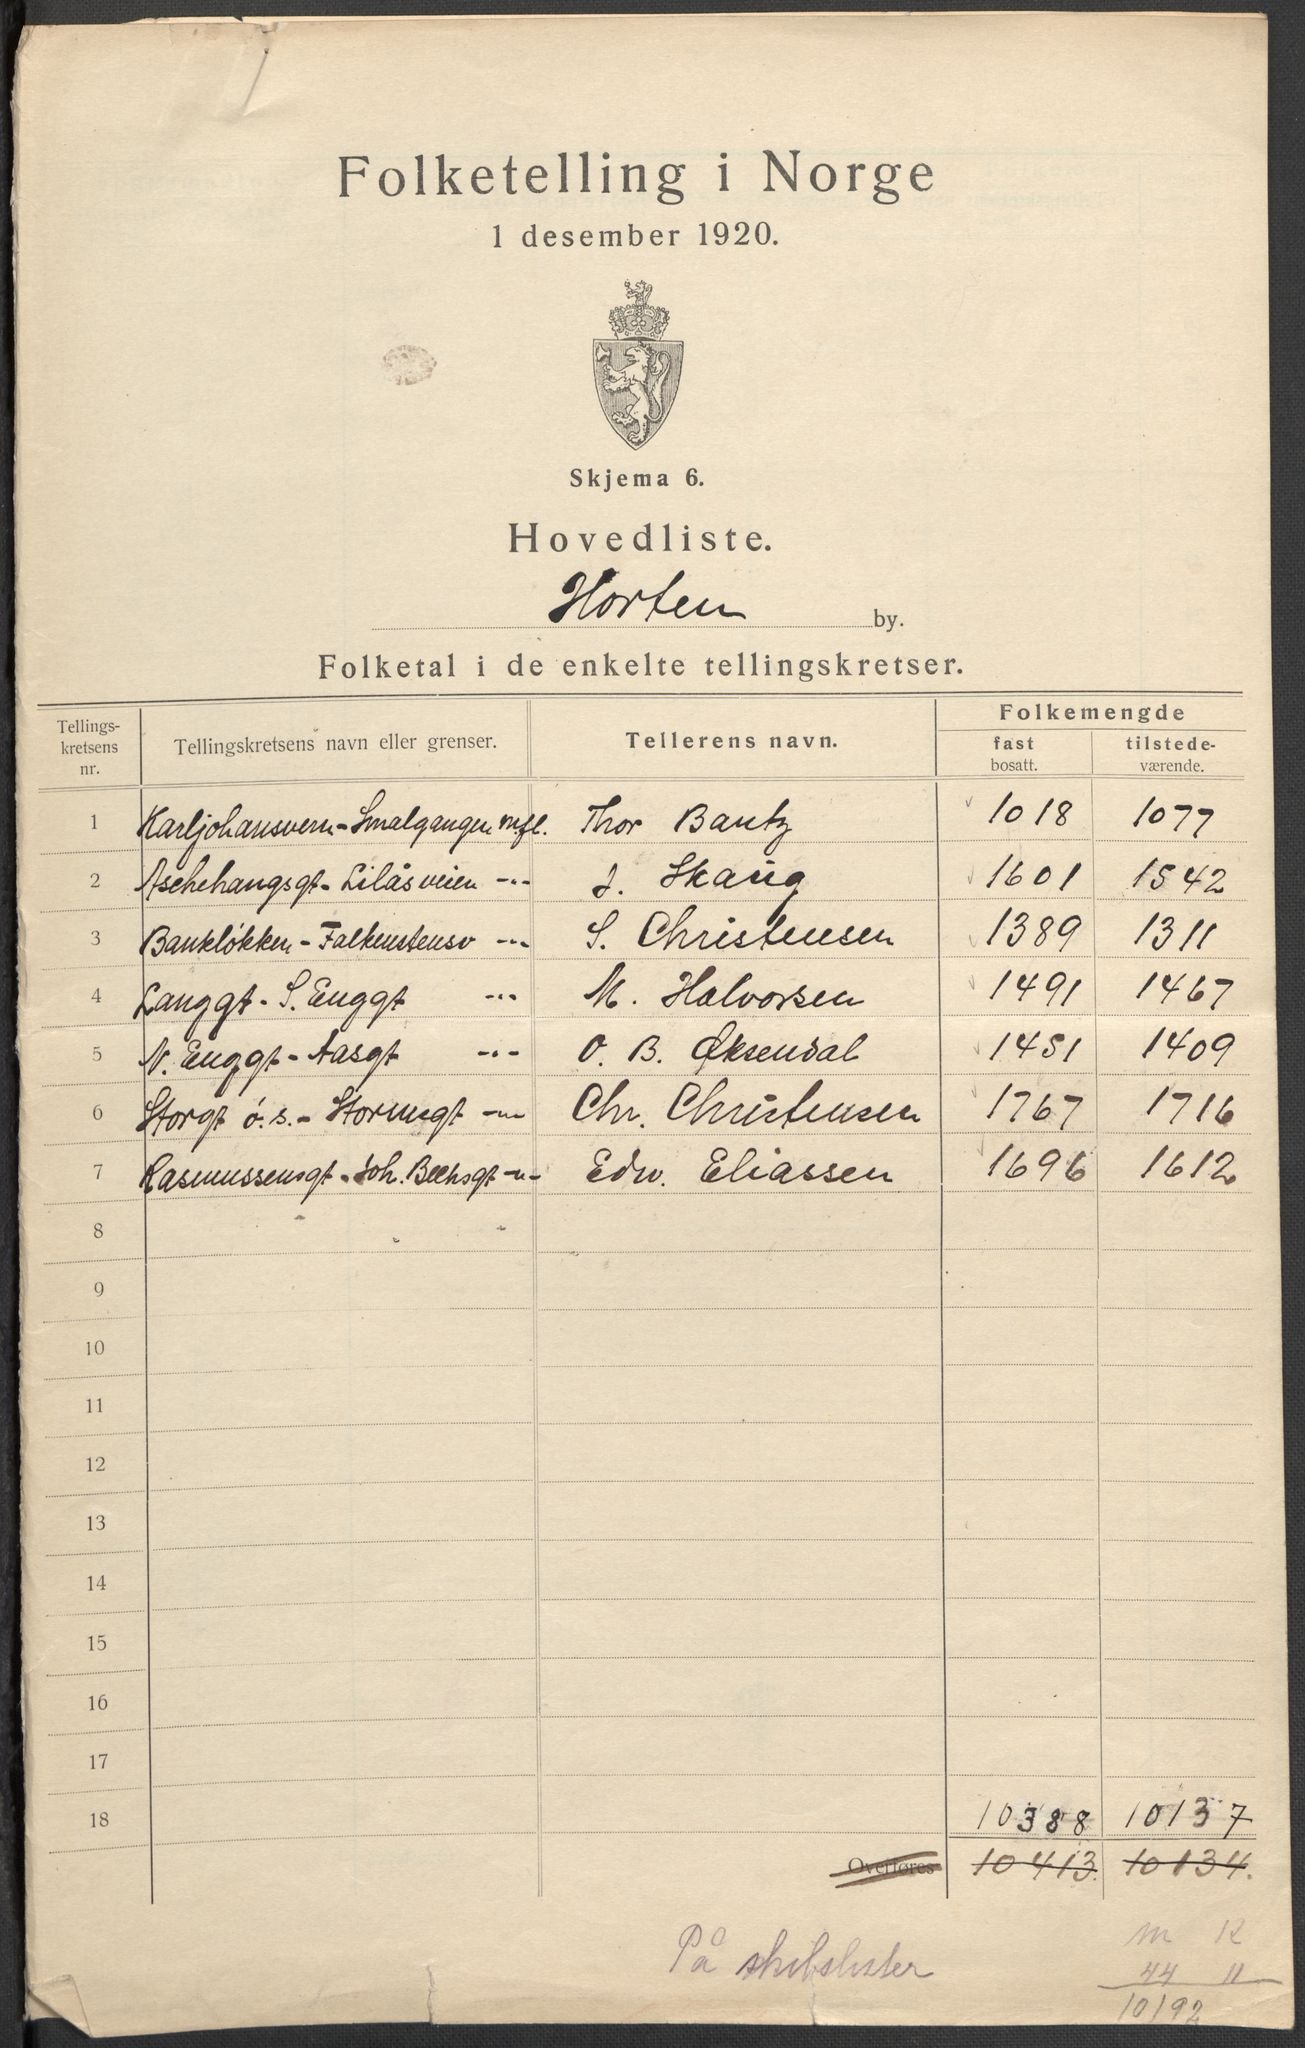 Folketelling i Norge
1 desember 1920.
Skjema 6.
Hovedliste.
Horten by.
Folketal i de enkelte tellingskretser.
Tellings-kretsens nr. Tellingskretsens navn eller grenser. Tellerens navn. Folkemengde fast bosatt. tilstede-værende.
1 Karljohansvern - Smalgangen m.fl. Thor Bantz 1018 1077
2 Aschehaugsgt - Lilásveien -"- J. Skaug 1601 1542
3 Bankløkken - Falkenstensv -"- S. Christensen 1389 1311
4 Langgt - S. Enggt -"- M. Halvorsen 1491 1467
5 N. Enggt - Aasgt -"- O. B. Øksendal 1451 1409
6 Storgt ö. s. - Stormgt -"- Chr. Christensen 1767 1716
7 Rasmussensgt - Joh. Bechsgt -"- Edw. Eliassen 1696 1612
8
9
10
11
12
13
14
15
16
17
18 10388 10137
Overføres 10413. 10134.
På skibslister
m K
44 11
10192